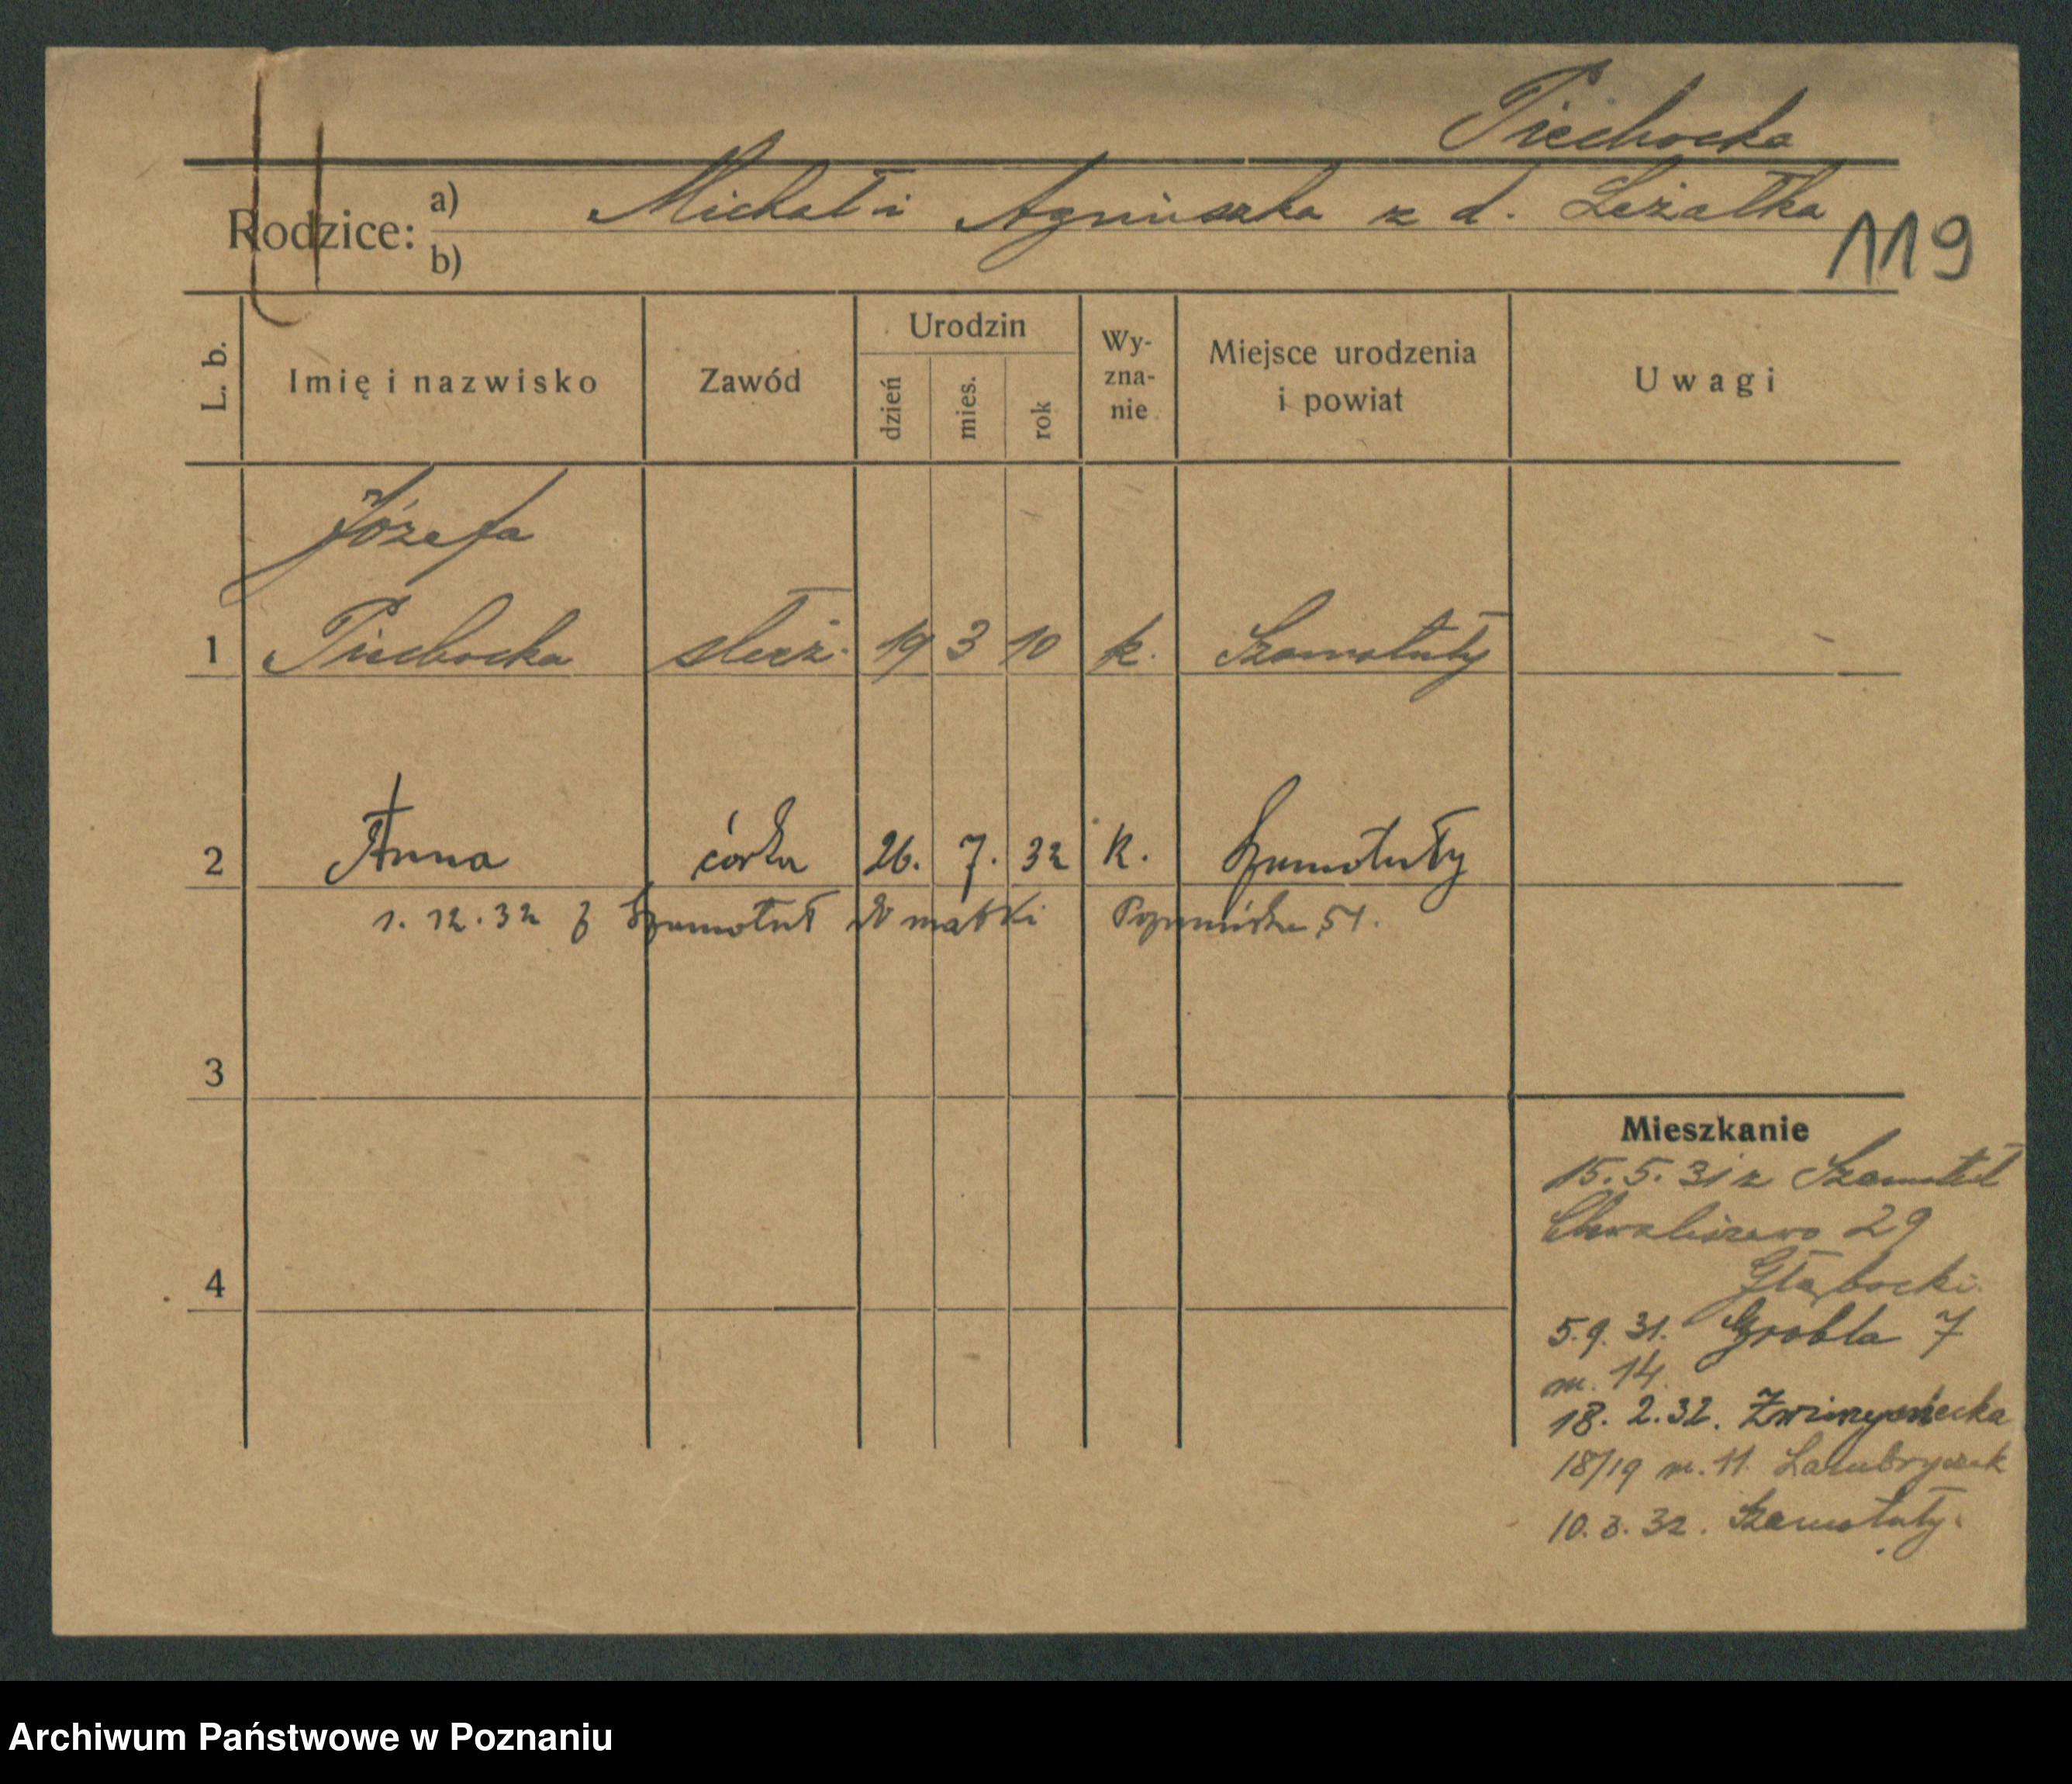 Piechocka
Rodzice: a) Michał i Agnieszka z d. Leżatka
b)
119
L. b. Imię i nazwisko Zawód Urodzin dzień mies. rok Wy-zna-nie Miejsce urodzenia i powiat Uwagi
Józefa
1 Piechocka służ. 19 3 10 k. Szamotuły
2 Anna córka 26. 7. 32 k. Szamotuły
1. 12. 32 z Szamotuł do matki Poznańska 51.
3
4
Mieszkanie
15.5.31 z Szamotuł
Chwaliszewo 29
Głębocki
5.9.31. Grobla 7
m. 14.
18.2.32. Zwierzyniecka
18/19 m. 11
10.3.32. Szamotuły.
Archiwum Państwowe w Poznaniu